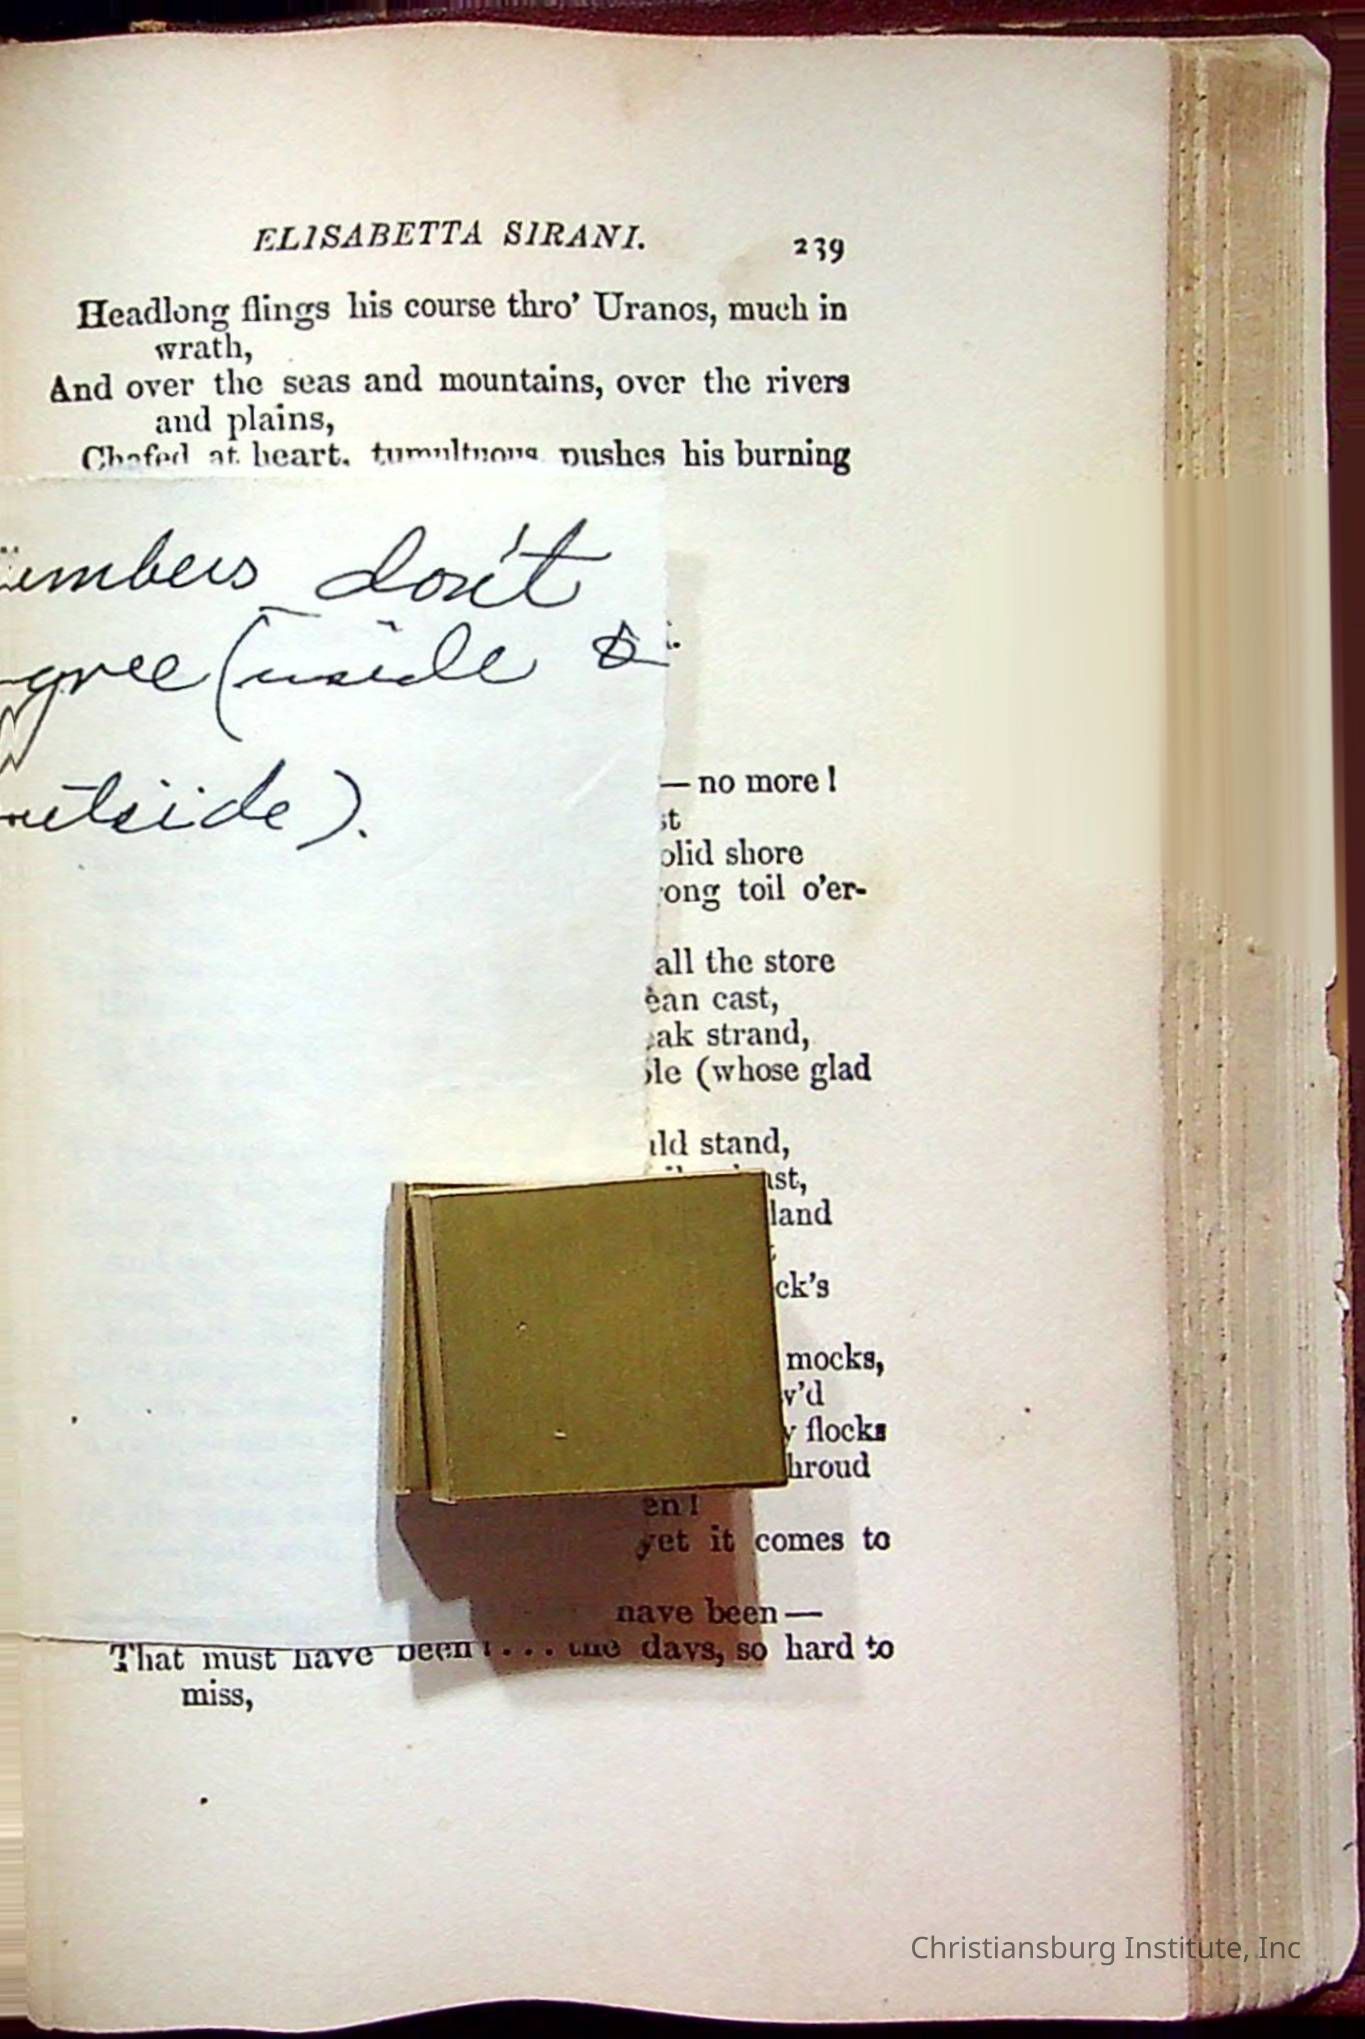 ELISABETTA SIRANI. 239
Headlong flings his course thro' Uranos, much in
wrath,
And over the seas and mountains, over the rivers
and plains,
Chafed at heart, tumultuous pushes his burning
don't
(inside &
outside).
— no more!
shore
toil o'er-
all the store
cast,
strand,
(whose glad
stand,
land
mocks,
flocks
yet it comes to
have been —
That must have been!... the days, so hard to
miss,
Christiansburg Institute, Inc